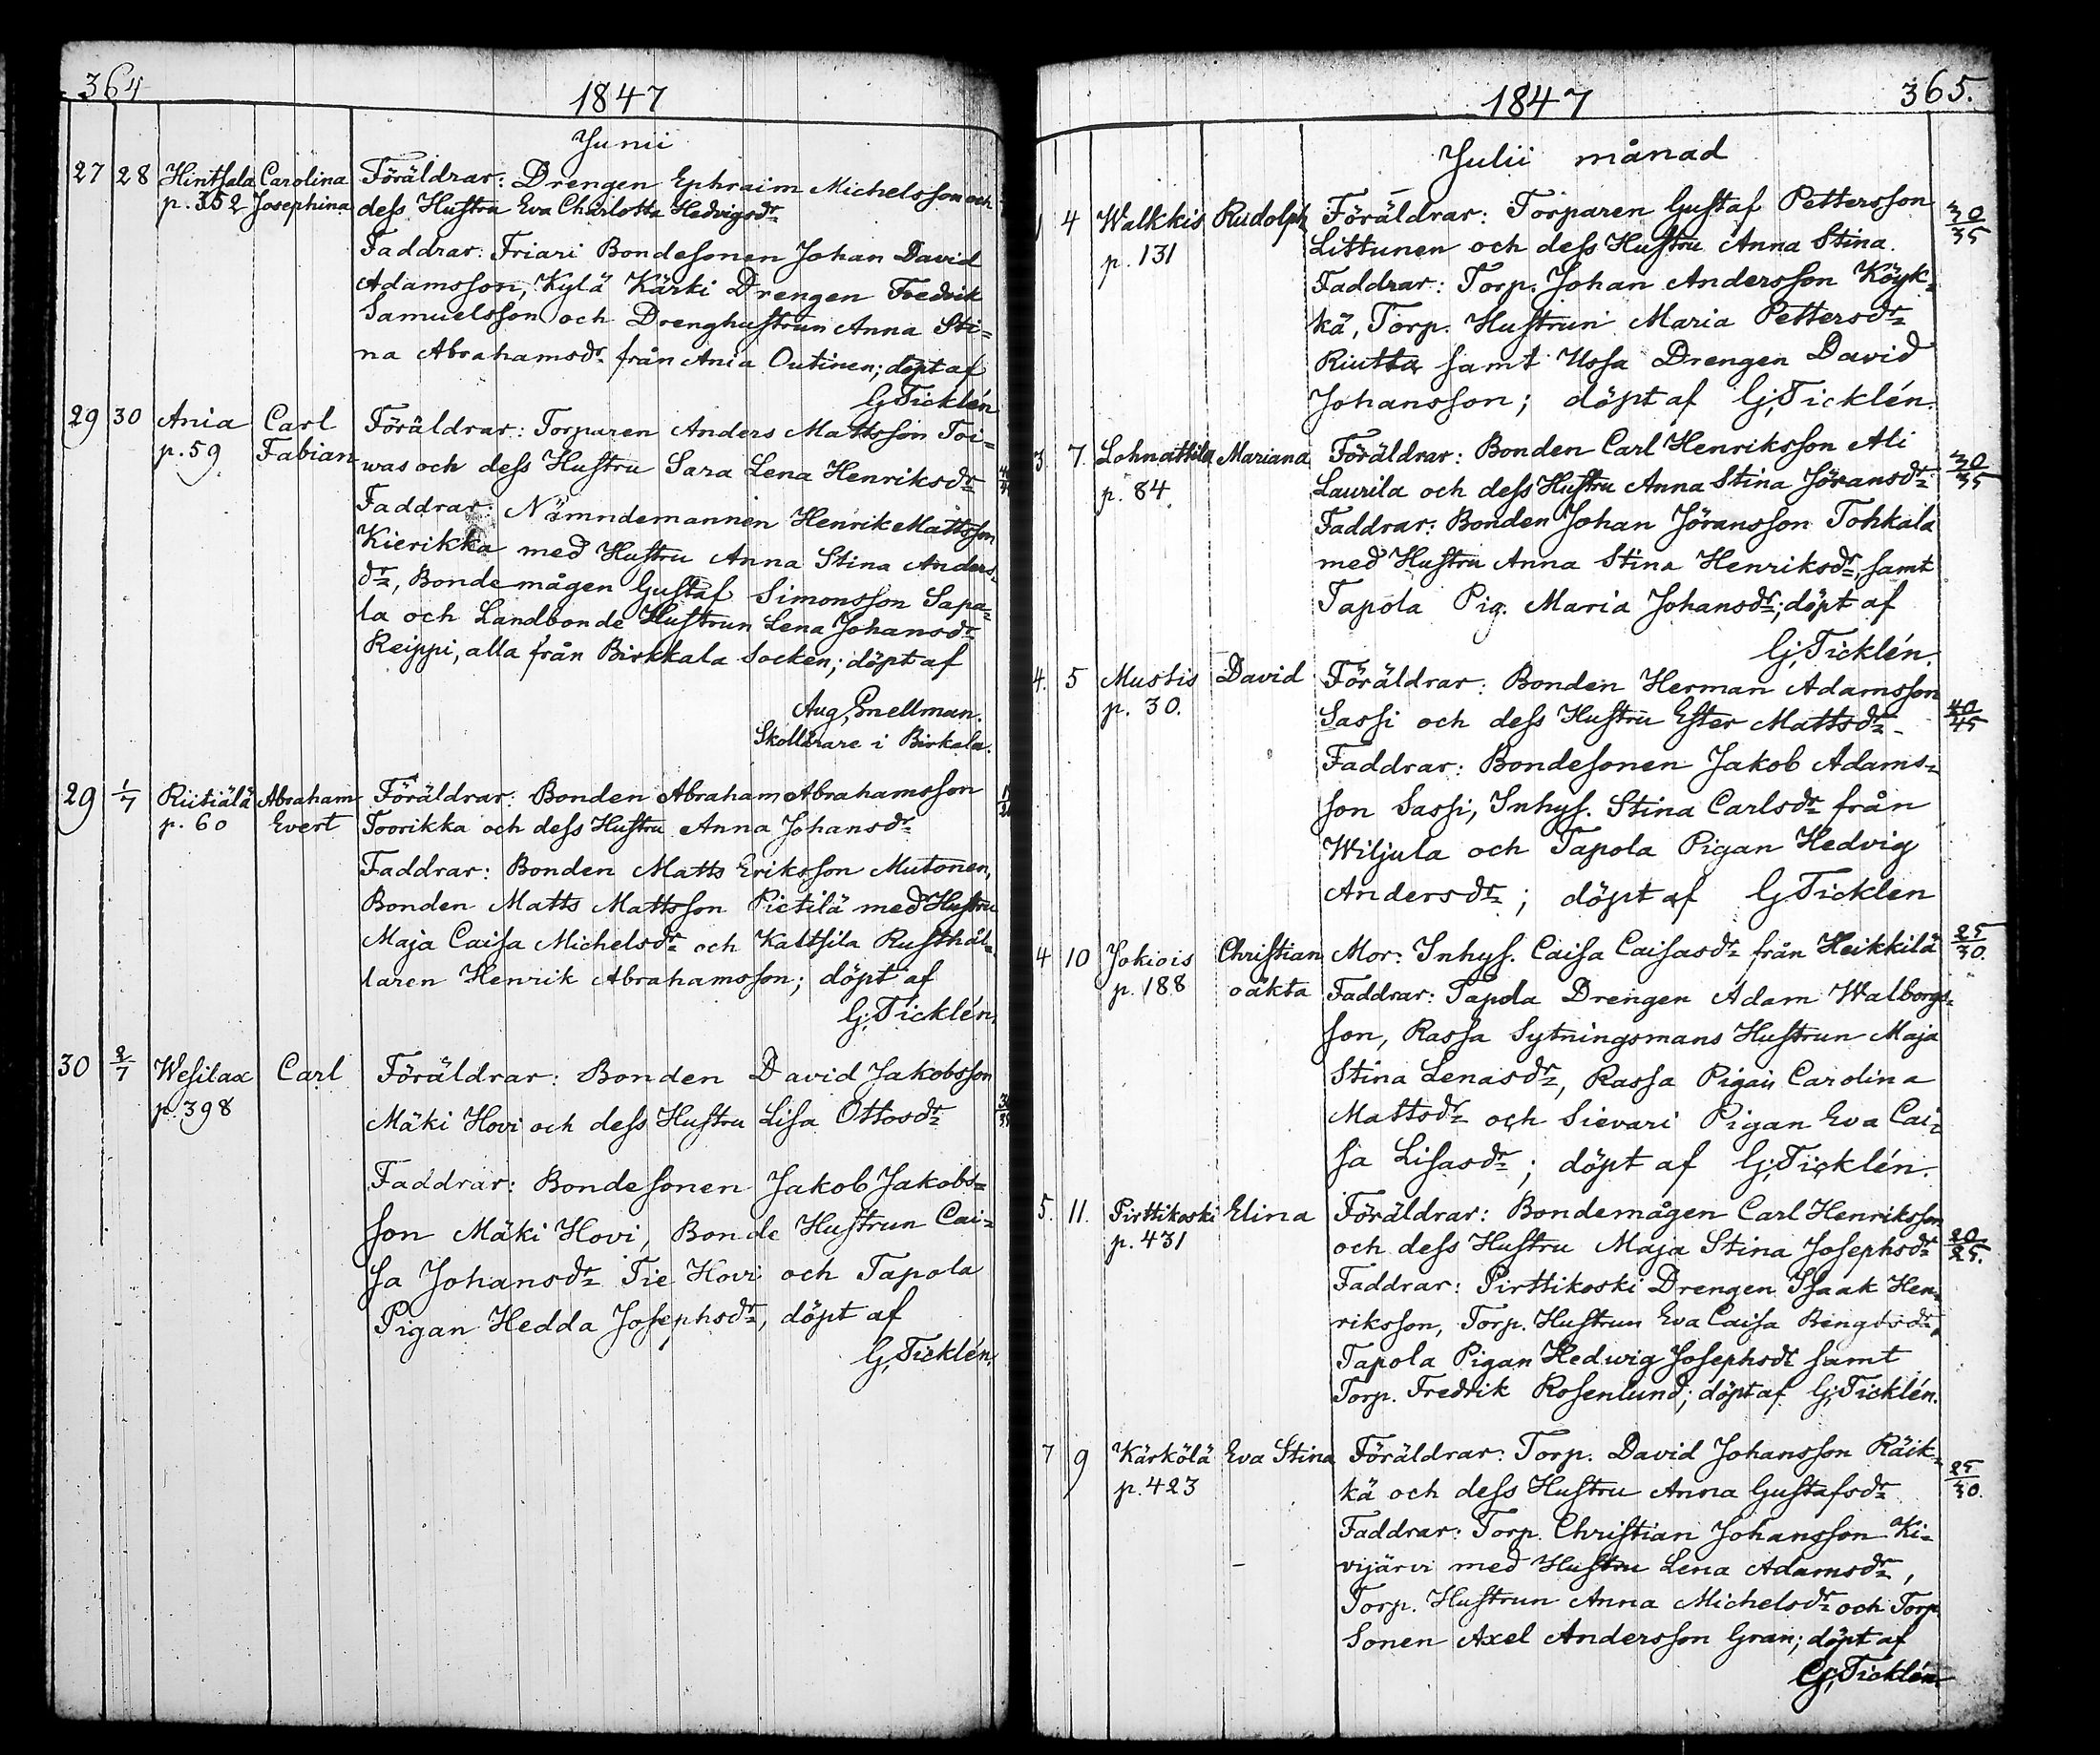 364
1847
Junii
27 28 Hintsala Carolina Föräldrar: Drengen Ephraim Michelsson och
p. 352 Josephina dess Hustru Eva Charlotta Hedvigsdr
Faddrar: Friari Bondesonen Johan David
Adamsson, Kylä Kärki Drengen Fredrik
Samuelsson och Drenghustrun Anna Sti=
na Abrahamsdr från Ania Outinen; döpt af
G. Ticklén
29 30 Ania Carl Föräldrar: Torparen Anders Mattsson Toi=
p. 59 Fabian was och dess Hustru Sara Lena Henriksdr
Faddrar: Nämndemannen Henrik Mattsson
Kierikka med Hustru Anna Stina Anders=
dr, Bondemågen Gustaf Simonsson Sapa=
la och Landbonde Hustrun Lena Johansdr
Reippi, alla från Birkkala Socken; döpt af
Aug. Snellman.
Skollärare i Birkala.
29 1/7 Riitiälä Abraham Föräldrar: Bonden Abraham Abrahamsson
p. 60 Evert Toorikka och dess Hustru Anna Johansdr
Faddrar: Bonden Matts Eriksson Mutonen,
Bonden Matts Mattsson Pietilä med Hustru
Maja Caisa Michelsdr och Kaltsila Rusthål=
laren Henrik Abrahamsson; döpt af
G. Ticklén.
30 2/7 Wesilax Carl Föräldrar: Bonden David Jakobsson
p. 398 Mäki Hovi och dess Hustru Lisa Ottosdr
Faddrar: Bondesonen Jakob Jakobs=
son Mäki Hovi, Bonde Hustrun Cai=
sa Johansdr Tie Hovi och Tapola
Pigan Hedda Josephsdr, döpt af
G. Ticklén.
365.
1847
Julii månad
1 4 Walkkis Rudolph Föräldrar: Torparen Gustaf Pettersson 30/35
p. 131 Littunen och dess Hustru Anna Stina.
Faddrar: Torp. Johan Andersson Köyk=
kä, Torp. Hustrun Maria Pettersdr
Riutta samt Ussa Drengen David
Johansson; döpt af G. Ticklén.
3. 7. Lohnattila Mariana Föräldrar: Bonden Carl Henriksson Ali 30/35
p. 84. Laurila och dess Hustru Anna Stina Jöransdr
Faddrar: Bonden Johan Jöransson Tohkala
med Hustru Anna Stina Henriksdr, samt
Tapola Pig. Maria Johansdr; döpt af
G. Ticklén.
4. 5 Mustis David Föräldrar: Bonden Herman Adamsson
p. 30. Sassi och dess Hustru Ester Mattsdr 40/45
Faddrar: Bondesonen Jakob Adams=
son Sassi, Inhys. Stina Carlsdr från
Wiljula och Tapola Pigan Hedvig
Andersdr; döpt af G. Ticklen
4 10 Jokiois Christian Mor: Inhys. Caisa Caisasdr från Heikkilä 25/30.
p. 188 oäkta Faddrar: Tapola Drengen Adam Walborgs=
son, Rassa Sytningsmans Hustrun Maja
Stina Lenasdr, Rassa Pigan Carolina
Mattsdr och Sievari Pigan Eva Cai=
sa Lisasdr; döpt af G. Ticklén.
5. 11. Pirttikoski Elina Föräldrar: Bondemågen Carl Henriksson
p. 431 och dess Hustru Maja Stina Josephsdr 20/25.
Faddrar: Pirttikoski Drengen Isaak Hen=
riksson, Torp. Hustrun Eva Caisa Bengtsdr,
Tapola Pigan Hedwig Josephsdr samt
Torp. Fredrik Rosenlund; döpt af G. Ticklén.
7 9 Kärkölä Eva Stina Föräldrar: Torp. David Johansson Räik=
p. 423 kä och dess Hustru Anna Gustafsdr 25/30.
Faddrar: Torp. Christian Johansson Ki=
vijärvi med Hustru Lena Adamsdr,
Torp. Hustrun Anna Michelsdr och Torp.
Sonen Axel Andersson Gran; döpt af
G. Ticklén.